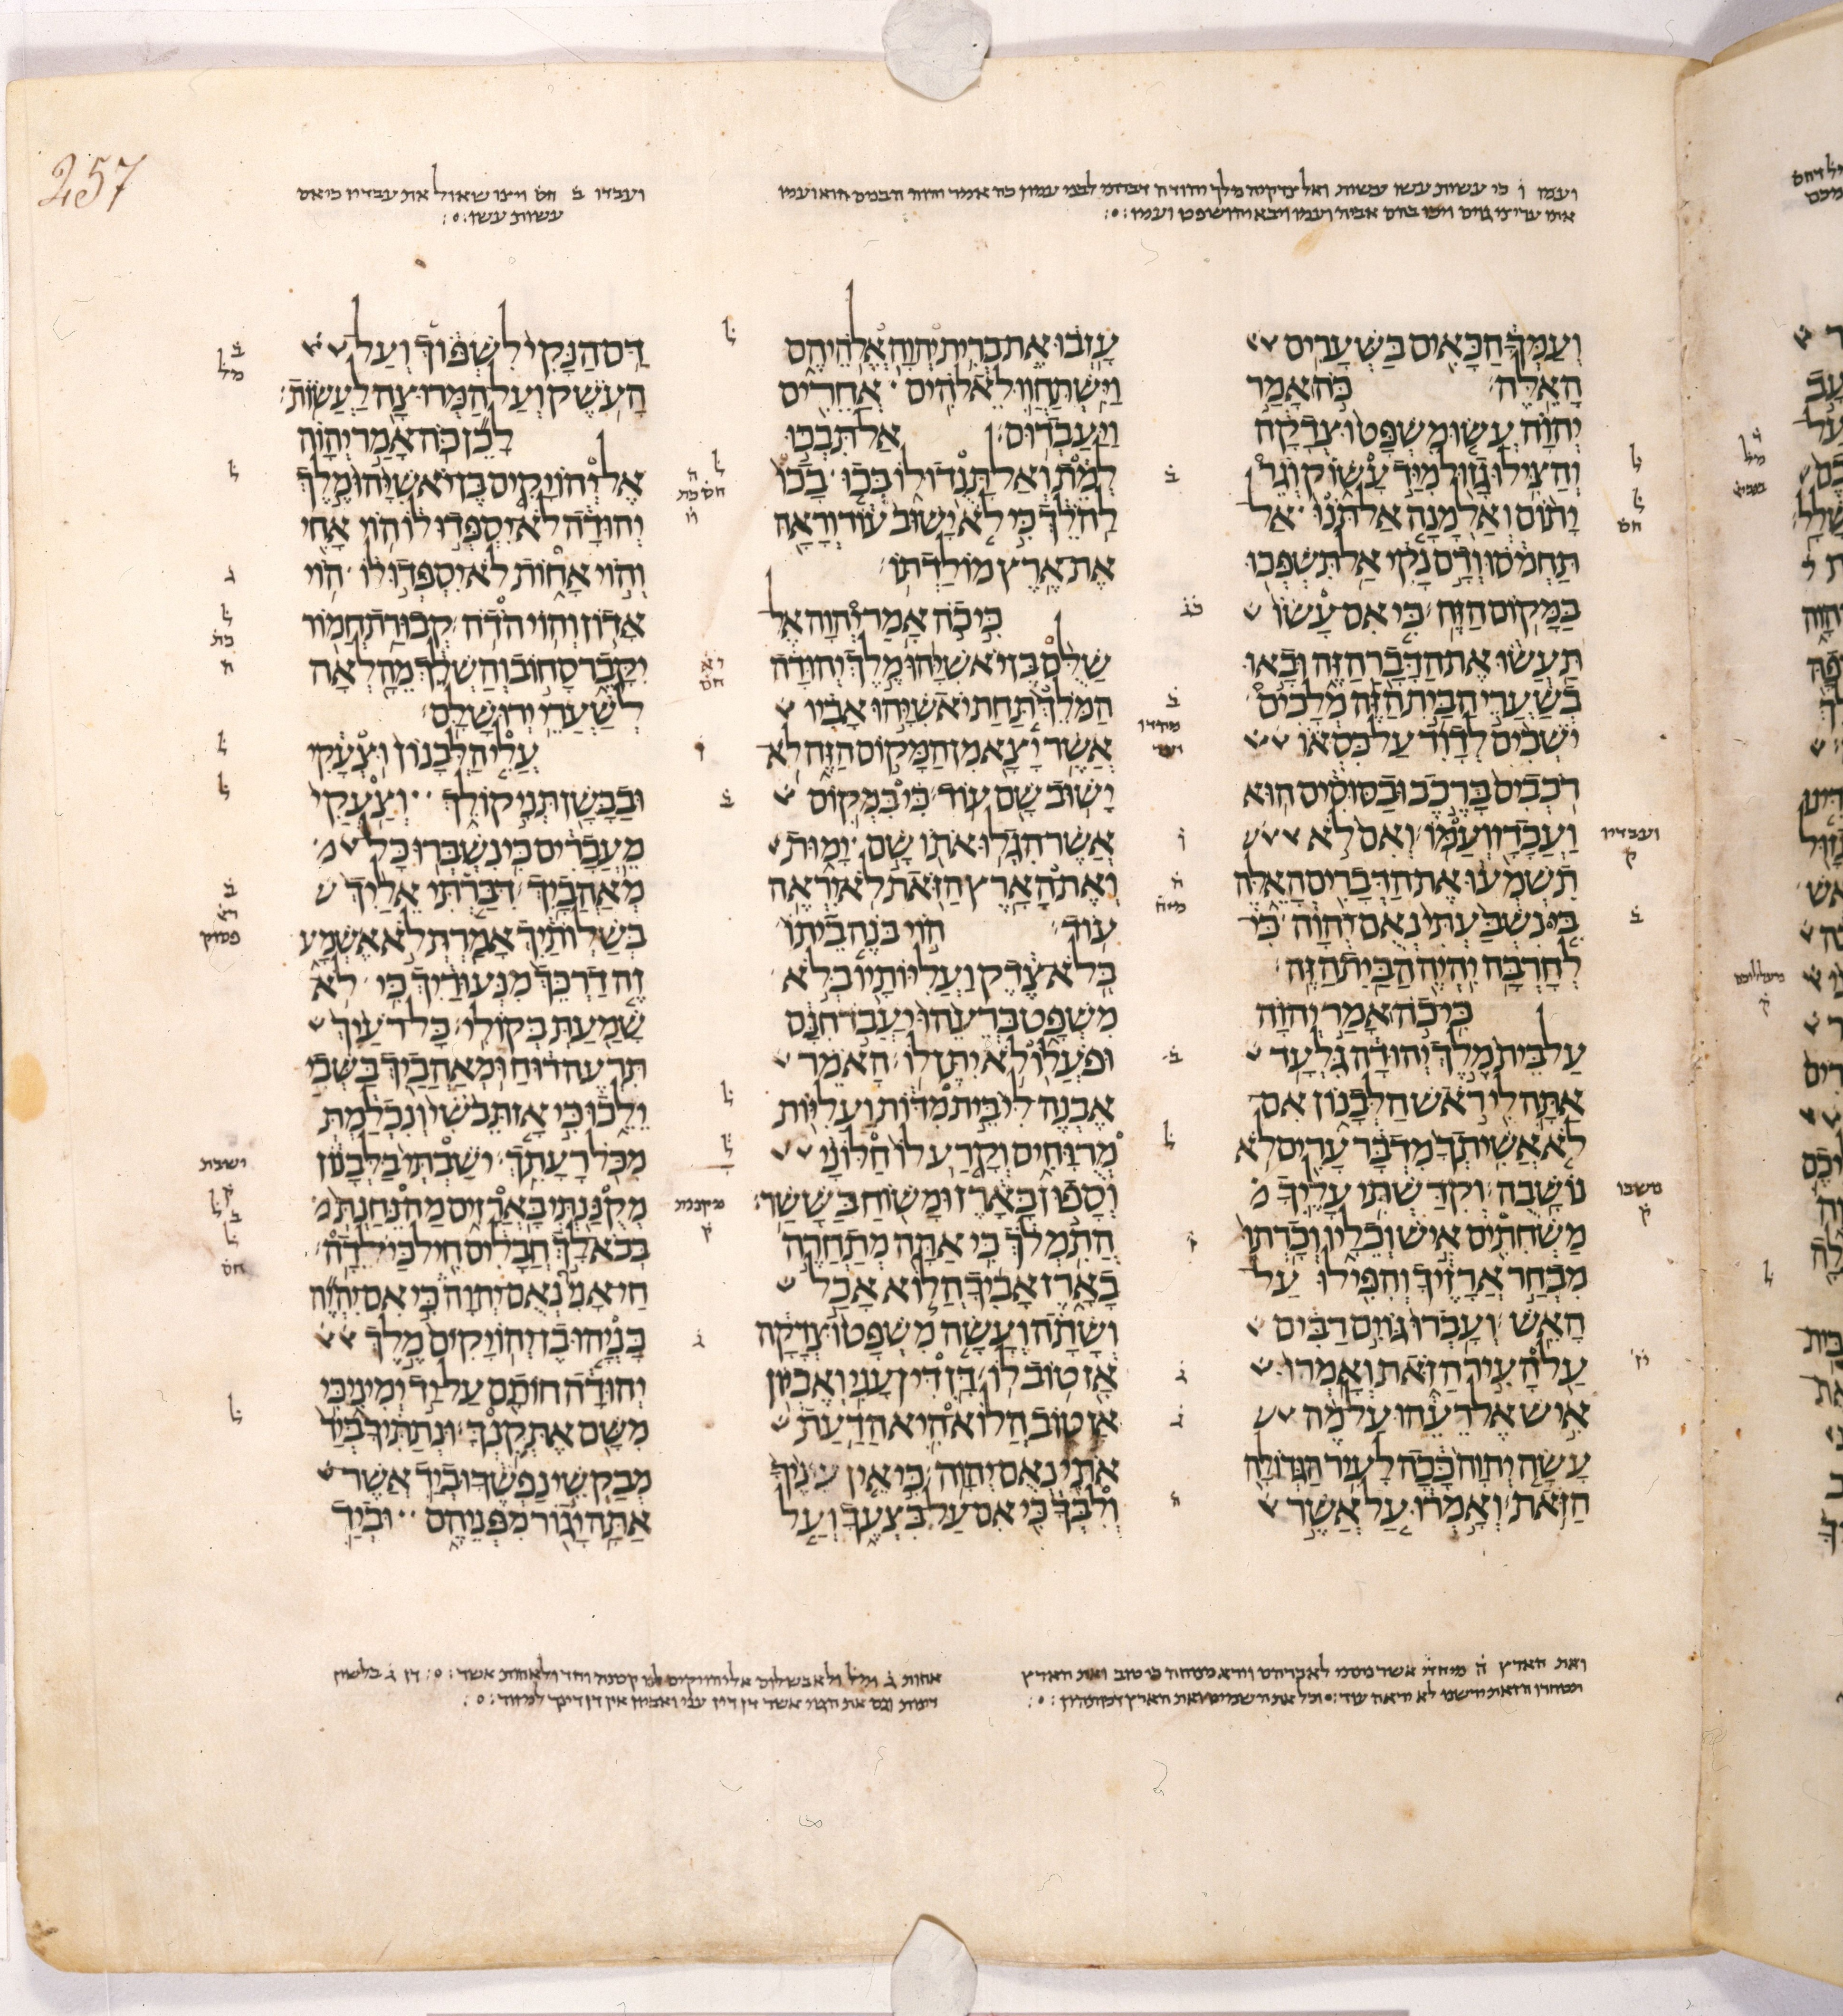 257
וְעַמְּךָ הַבָּאִים בַּשְּׁעָרִים
הָאֵלֶּה׃ כֹּה אָמַר
יְהוָה עֲשׂוּ מִשְׁפָּט וּצְדָקָה
וְהַצִּילוּ גָזוּל מִיַּד עָשׁוֹק וְגֵר
יָתוֹם וְאַלְמָנָה אַל תֹּנוּ אַל
תַּחְמֹסוּ וְדָם נָקִי אַל תִּשְׁפְּכוּ
בַּמָּקוֹם הַזֶּה׃ כִּי אִם עָשׂוֹ
תַּעֲשׂוּ אֶת הַדָּבָר הַזֶּה וּבָאוּ
בְשַׁעֲרֵי הַבַּיִת הַזֶּה מְלָכִים
יֹשְׁבִים לְדָוִד עַל כִּסְאוֹ
רֹכְבִים בָּרֶכֶב וּבַסּוּסִים הוּא
וַעֲבָדָו וְעַמּוֹ׃ וְאִם לֹא
תִשְׁמְעוּ אֶת הַדְּבָרִים הָאֵלֶּה
בִּי נִשְׁבַּעְתִּי נְאֻם יְהוָה כִּי
לְחָרְבָּה יִהְיֶה הַבַּיִת הַזֶּה׃
כִּי כֹה אָמַר יְהוָה
עַל בֵּית מֶלֶךְ יְהוּדָה גִּלְעָד
אַתָּה לִי רֹאשׁ הַלְּבָנוֹן אִם
לֹא אֲשִׁיתְךָ מִדְבָּר עָרִים לֹא
נוֹשָׁבֻה׃ וְקִדַּשְׁתִּי עָלֶיךָ
מַשְׁחִתִים אִישׁ וְכֵלָיו וְכָרְתוּ
מִבְחַר אֲרָזֶיךָ וְהִפִּילוּ עַל
הָאֵשׁ׃ וְעָבְרוּ גּוֹיִם רַבִּים
עַל הָעִיר הַזֹּאת וְאָמְרוּ
אִישׁ אֶל רֵעֵהוּ עַל מֶה
עָשָׂה יְהוָה כָּכָה לָעִיר הַגְּדוֹלָה
הַזֹּאת׃ וְאָמְרוּ עַל אֲשֶׁר
עָזְבוּ אֶת בְּרִית יְהוָה אֱלֹהֵיהֶם
וַיִּשְׁתַּחֲווּ לֵאלֹהִים אֲחֵרִים
וַיַּעַבְדוּם׃ אַל תִּבְכּוּ
לְמֵת וְאַל תָּנֻדוּ לוֹ בְּכוּ בָכוֹ
לַהֹלֵךְ כִּי לֹא יָשׁוּב עוֹד וְרָאָה
אֶת אֶרֶץ מוֹלַדְתּוֹ׃
כִּי כֹה אָמַר יְהוָה אֶל
שַׁלֻּם בֶּן יֹאשִׁיָּהוּ מֶלֶךְ יְהוּדָה
הַמֹּלֵךְ תַּחַת יֹאשִׁיָּהוּ אָבִיו
אֲשֶׁר יָצָא מִן הַמָּקוֹם הַזֶּה לֹא
יָשׁוּב שָׁם עוֹד׃ כִּי בִּמְקוֹם
אֲשֶׁר הִגְלוּ אֹתוֹ שָׁם יָמוּת
וְאֶת הָאָרֶץ הַזֹּאת לֹא יִרְאֶה
עוֹד׃ הוֹי בֹּנֶה בֵיתוֹ
בְּלֹא צֶדֶק וַעֲלִיּוֹתָיו בְּלֹא
מִשְׁפָּט בְּרֵעֵהוּ יַעֲבֹד חִנָּם
וּפֹעֲלוֹ לֹא יִתֶּן לוֹ׃ הָאֹמֵר
אֶבְנֶה לִּי בֵּית מִדּוֹת וַעֲלִיּוֹת
מְרֻוָּחִים וְקָרַע לוֹ חַלּוֹנָי
וְסָפוּן בָּאָרֶז וּמָשׁוֹחַ בַּשָּׁשַׁר׃
הֲתִמְלֹךְ כִּי אַתָּה מְתַחֲרֶה
בָאָרֶז אָבִיךָ הֲלוֹא אָכַל
וְשָׁתָה וְעָשָׂה מִשְׁפָּט וּצְדָקָה
אָז טוֹב לוֹ׃ דָּן דִּין עָנִי וְאֶבְיוֹן
אָז טוֹב הֲלוֹא הִיא הַדַּעַת
אֹתִי נְאֻם יְהוָה׃ כִּי אֵין עֵינֶיךָ
וְלִבְּךָ כִּי אִם עַל בִּצְעֶךָ וְעַל
דַּם הַנָּקִי לִשְׁפּוֹךְ וְעַל
הָעֹשֶׁק וְעַל הַמְּרוּצָה לַעֲשׂוֹת׃
לָכֵן כֹּה אָמַר יְהוָה
אֶל יְהוֹיָקִים בֶּן יֹאשִׁיָּהוּ מֶלֶךְ
יְהוּדָה לֹא יִסְפְּדוּ לוֹ הוֹי אָחִי
וְהוֹי אָחוֹת לֹא יִסְפְּדוּ לוֹ הוֹי
אָדוֹן וְהוֹי הֹדֹה׃ קְבוּרַת חֲמוֹר
יִקָּבֵר סָחוֹב וְהַשְׁלֵךְ מֵהָלְאָה
לְשַׁעֲרֵי יְרוּשָׁלִָם׃
עֲלִי הַלְּבָנוֹן וּצְעָקִי
וּבַבָּשָׁן תְּנִי קוֹלֵךְ וְצַעֲקִי
מֵעֲבָרִים כִּי נִשְׁבְּרוּ כָּל
מְאַהֲבָיִךְ׃ דִּבַּרְתִּי אֵלַיִךְ
בְּשַׁלְוֹתַיִךְ אָמַרְתְּ לֹא אֶשְׁמָע
זֶה דַרְכֵּךְ מִנְּעוּרַיִךְ כִּי לֹא
שָׁמַעַתְּ בְּקוֹלִי׃ כָּל רֹעַיִךְ
תִּרְעֶה רוּחַ וּמְאַהֲבַיִךְ בַּשְּׁבִי
יֵלֵכוּ כִּי אָז תֵּבֹשִׁי וְנִכְלַמְתְּ
מִכֹּל רָעָתֵךְ׃ יֹשַׁבְתְּי בַּלְּבָנוֹן
מְקֻנַּנְתְּי בָּאֲרָזִים מַה נֵּחַנְתְּ
בְּבֹא לָךְ חֲבָלִים חִיל כַּיֹּלֵדָה׃
חַי אָנִי נְאֻם יְהוָה כִּי אִם יִהְיֶה
כָּנְיָהוּ בֶן יְהוֹיָקִים מֶלֶךְ
יְהוּדָה חוֹתָם עַל יַד יְמִינִי כִּי
מִשָּׁם אֶתְּקֶנְךָּ׃ וּנְתַתִּיךָ בְּיַד
מְבַקְשֵׁי נַפְשֶׁךָ וּבְיַד אֲשֶׁר
אַתָּה יָגוֹר מִפְּנֵיהֶם וּבְיַד